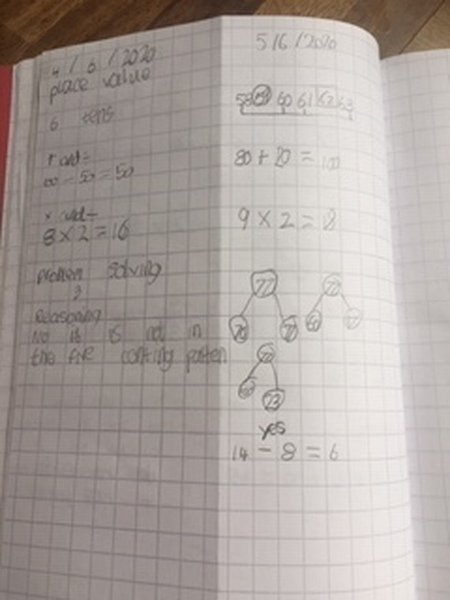 4 / 6 / 2020
place value
6 tens
+ and ÷
100 - 50 = 50
× and ÷
8 × 2 = 16
problem solving
?
Reasoning
No it is not in
the five conting patten
5/6/2020
58 59 60 61 62 63
80 + 20 = 100
9 × 2 = 18
77
70
yes
14 - 8 = 6